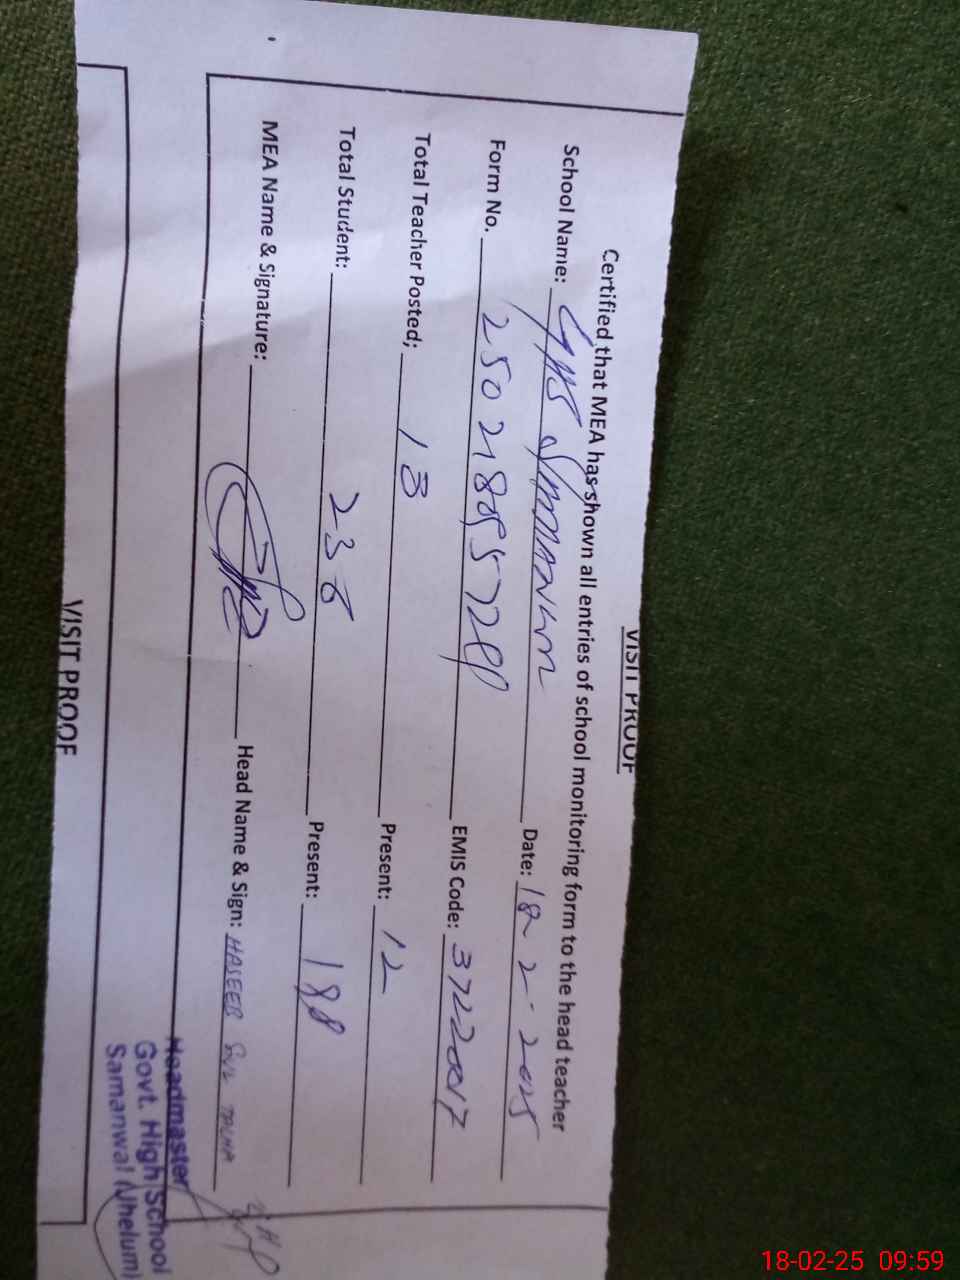 VISIT PROOF
Certified that MEA has shown all entries of school monitoring form to the head teacher
School Name: GHS Date: 18-2-2025
Form No. EMIS Code: 37220017
Total Teacher Posted; 13 Present: 12
Total Student: 236 Present: 188
MEA Name & Signature: Head Name & Sign: HASEEB
Headmaster
Govt. High School
Samanwal (Jhelum)
VISIT PROOF
18-02-25 09:59